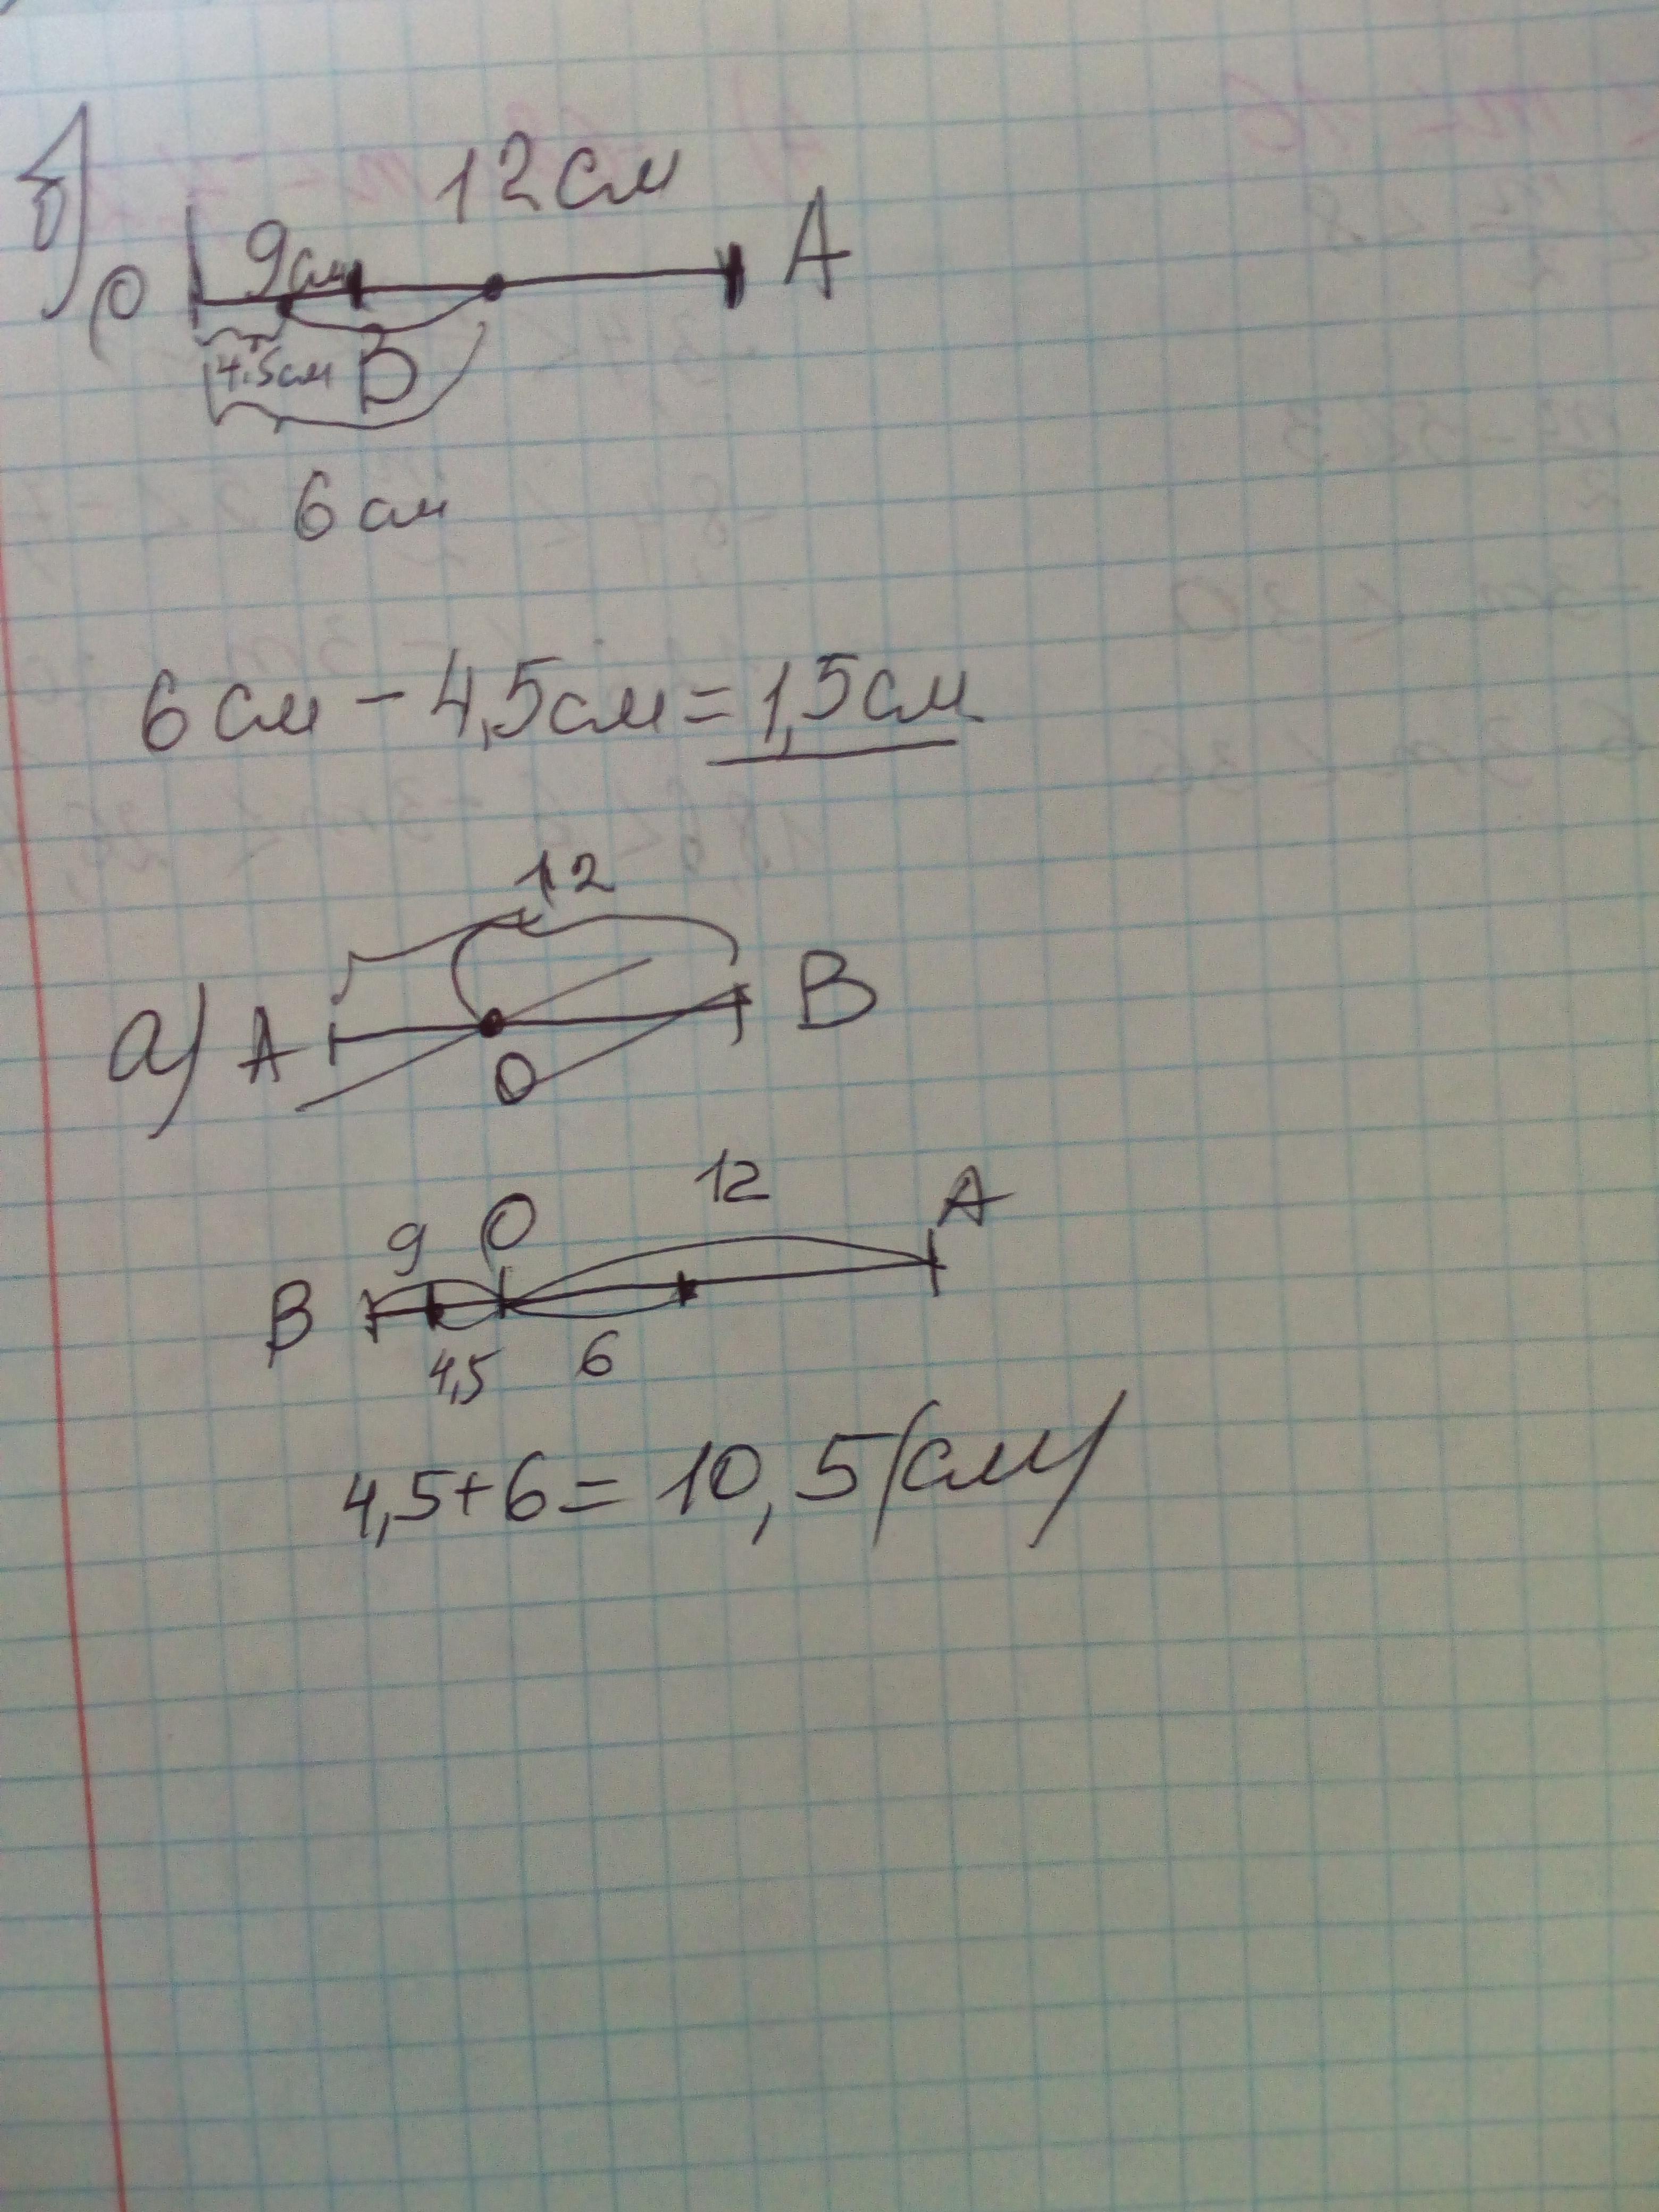 б)
12 см
O 9 см A
4.5 см B
6 см
6 см - 4,5 см = 1,5 см
12
а) A B
O
12
9 O A
B
4,5 6
4,5 + 6 = 10,5 (см)